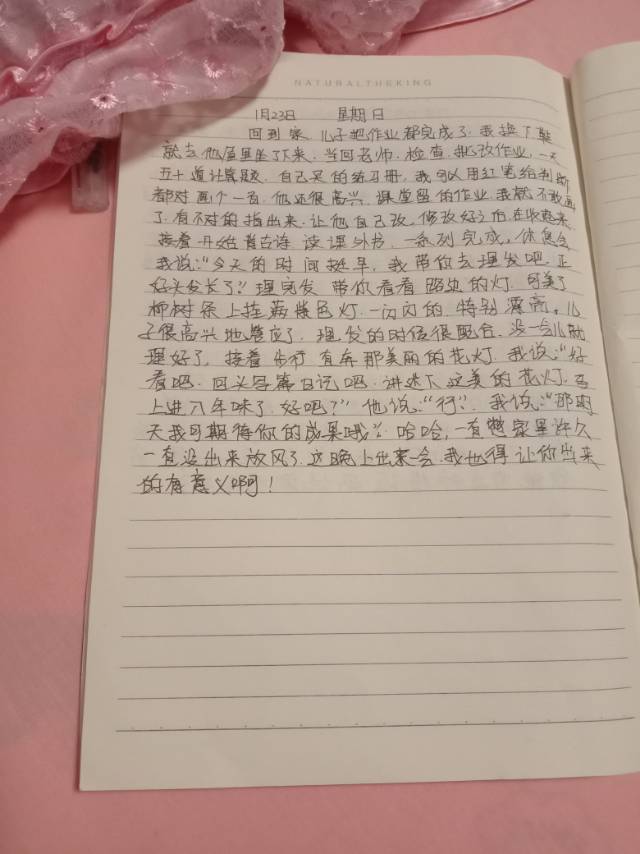 NATURALTHEKING
1月23日 星期日
回到家,儿子把作业都完成了.我换下鞋
就去他屋里坐了下来.当回老师.检查.批改作业,一天
五十道计算题.自己买的练习册.我可以用红笔给判断
都对画个一百.他还很高兴.课堂留的作业.我就不敢画
了.有不对的指出来.让他自己改.修改好之后在收起来.
接着开始背古诗 读课外书.一系列完成,休息会
我说:“今天的时间挺早,我带你去理发吧.正
好头发长了.”理完发 带你看看路边的灯.可美了
柳树条上挂满橙色灯.一闪闪的.特别漂亮。儿
子很高兴地答应了.理发的时候很配合.没一会儿就
理好了.接着步行 直奔那美丽的花灯.我说:“好
看吧.回头写篇日记吧.讲述下这美的花灯.马
上进入年味了.好吧?”他说:“行”.我说:“那明
天我可期待你的成果哦”.哈哈,一直憋家里许久
一直没出来放风了.这晚上出来一会.我也得让你出来
的有意义啊!